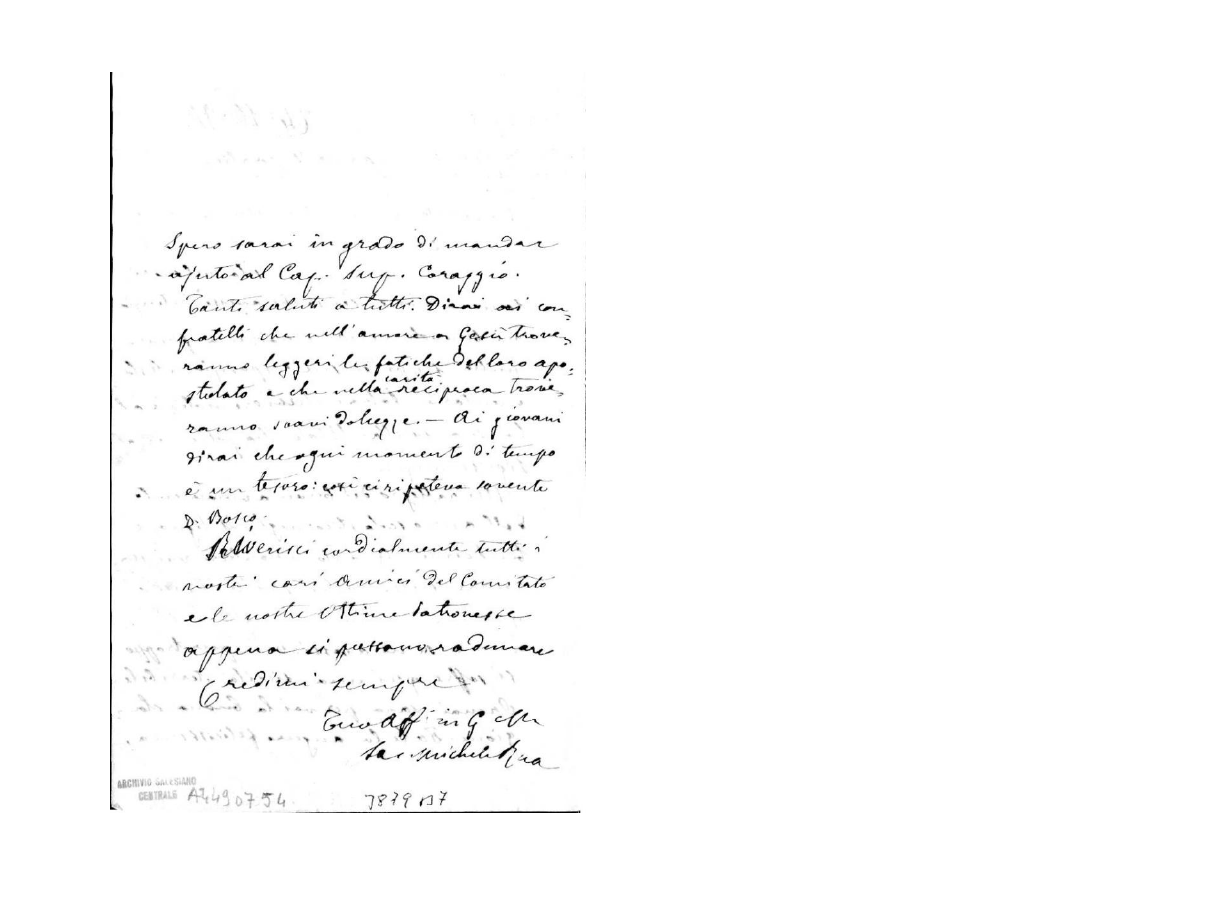 Spero sarai in grado di mandar
ajuto al Cap. Sup. Coraggio.
Tanti saluti a tutti. Dirai ai con=
fratelli che nell'amore a Gesù trove=
ranno leggeri le fatiche del loro apo=
stolato e che nella carità reciproca trove=
ranno soavi dolcezze. — Ai giovani
dirai che ogni momento di tempo
è un tesoro: così ci ripeteva sovente
D. Bosco.
Riverisci cordialmente tutti i
nostri cari Amici del Comitato
e le nostre Ottime Patronesse
appena si possano radunare
Credimi sempre
Tuo Aff in G e M
Sac. Michele Rua
ARCHIVIO SALESIANO
CENTRALE A4490754
3879 B7